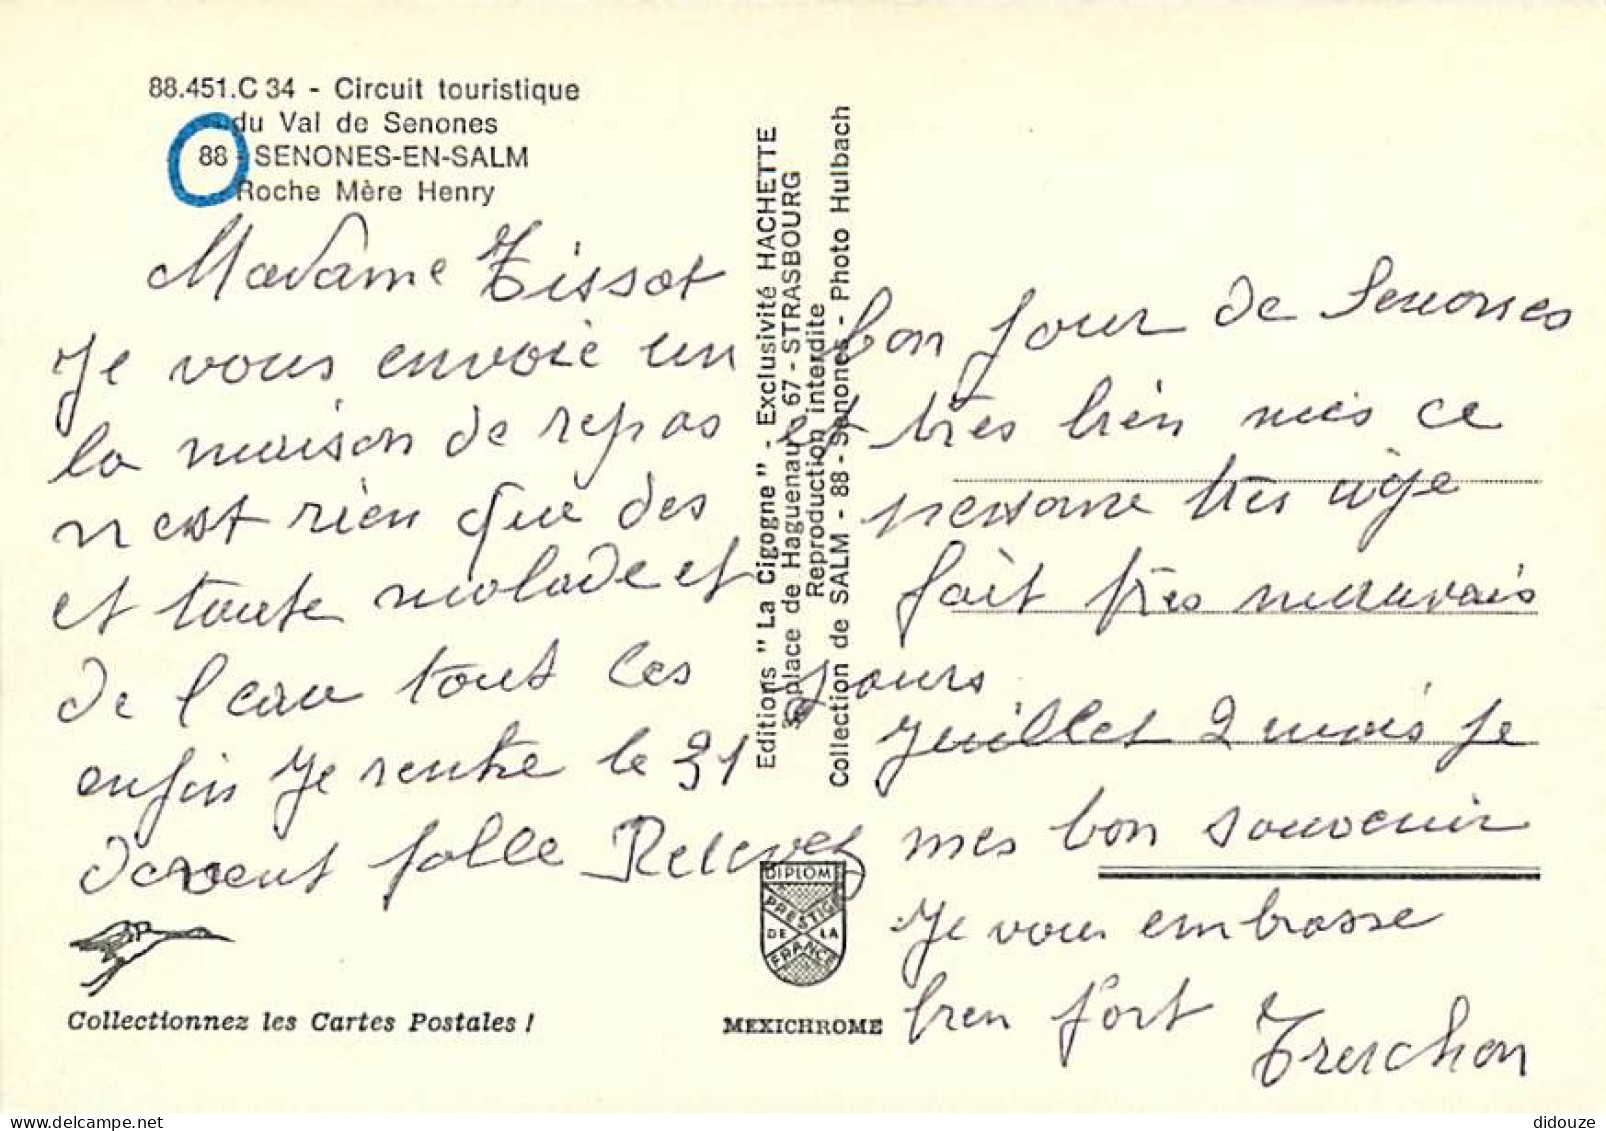 88.451.C 34 - Circuit touristique
du Val de Senones
88 - SENONES-EN-SALM
Roche Mère Henry
Madame Tissot
Je vous envoie un bon Jour de Senones
la maison de repos et très bien mais ce
n'est rien que des personne très age
et toute malade et fait très mauvais
de l'eau tout les jours
enfin Je rentre le 31 Juillet 2 mois Je
devent folle Recevez mes bon souvenir
Je vous embrasse
bien fort
Editions " La Cigogne " - Exclusivité HACHETTE
place de Haguenau - 67 - STRASBOURG
Reproduction interdite
Collection de SALM - 88 - Senones - Photo Hulbach
DIPLOME
PRESTIGE
DE LA
FRANCE
Collectionnez les Cartes Postales !
MEXICHROME
didouze